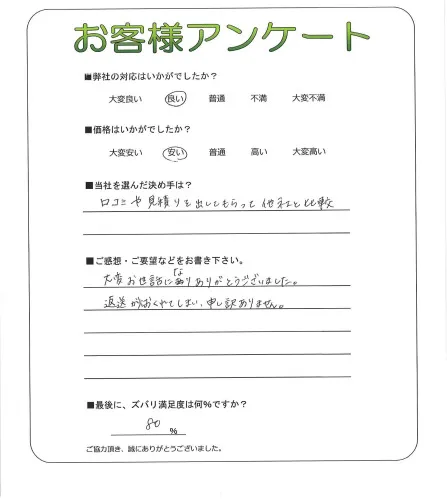 お客様アンケート
■弊社の対応はいかがでしたか?
大変良い 良い 普通 不満 大変不満
■価格はいかがでしたか?
大変安い 安い 普通 高い 大変高い
■当社を選んだ決め手は?
口コミや見積りを出してもらって他社と比較
■ご感想・ご要望などをお書き下さい。
大変お世話になりありがとうございました。
返送がおくれてしまい、申し訳ありません。
■最後に、ズバリ満足度は何%ですか?
80 %
ご協力頂き、誠にありがとうございました。